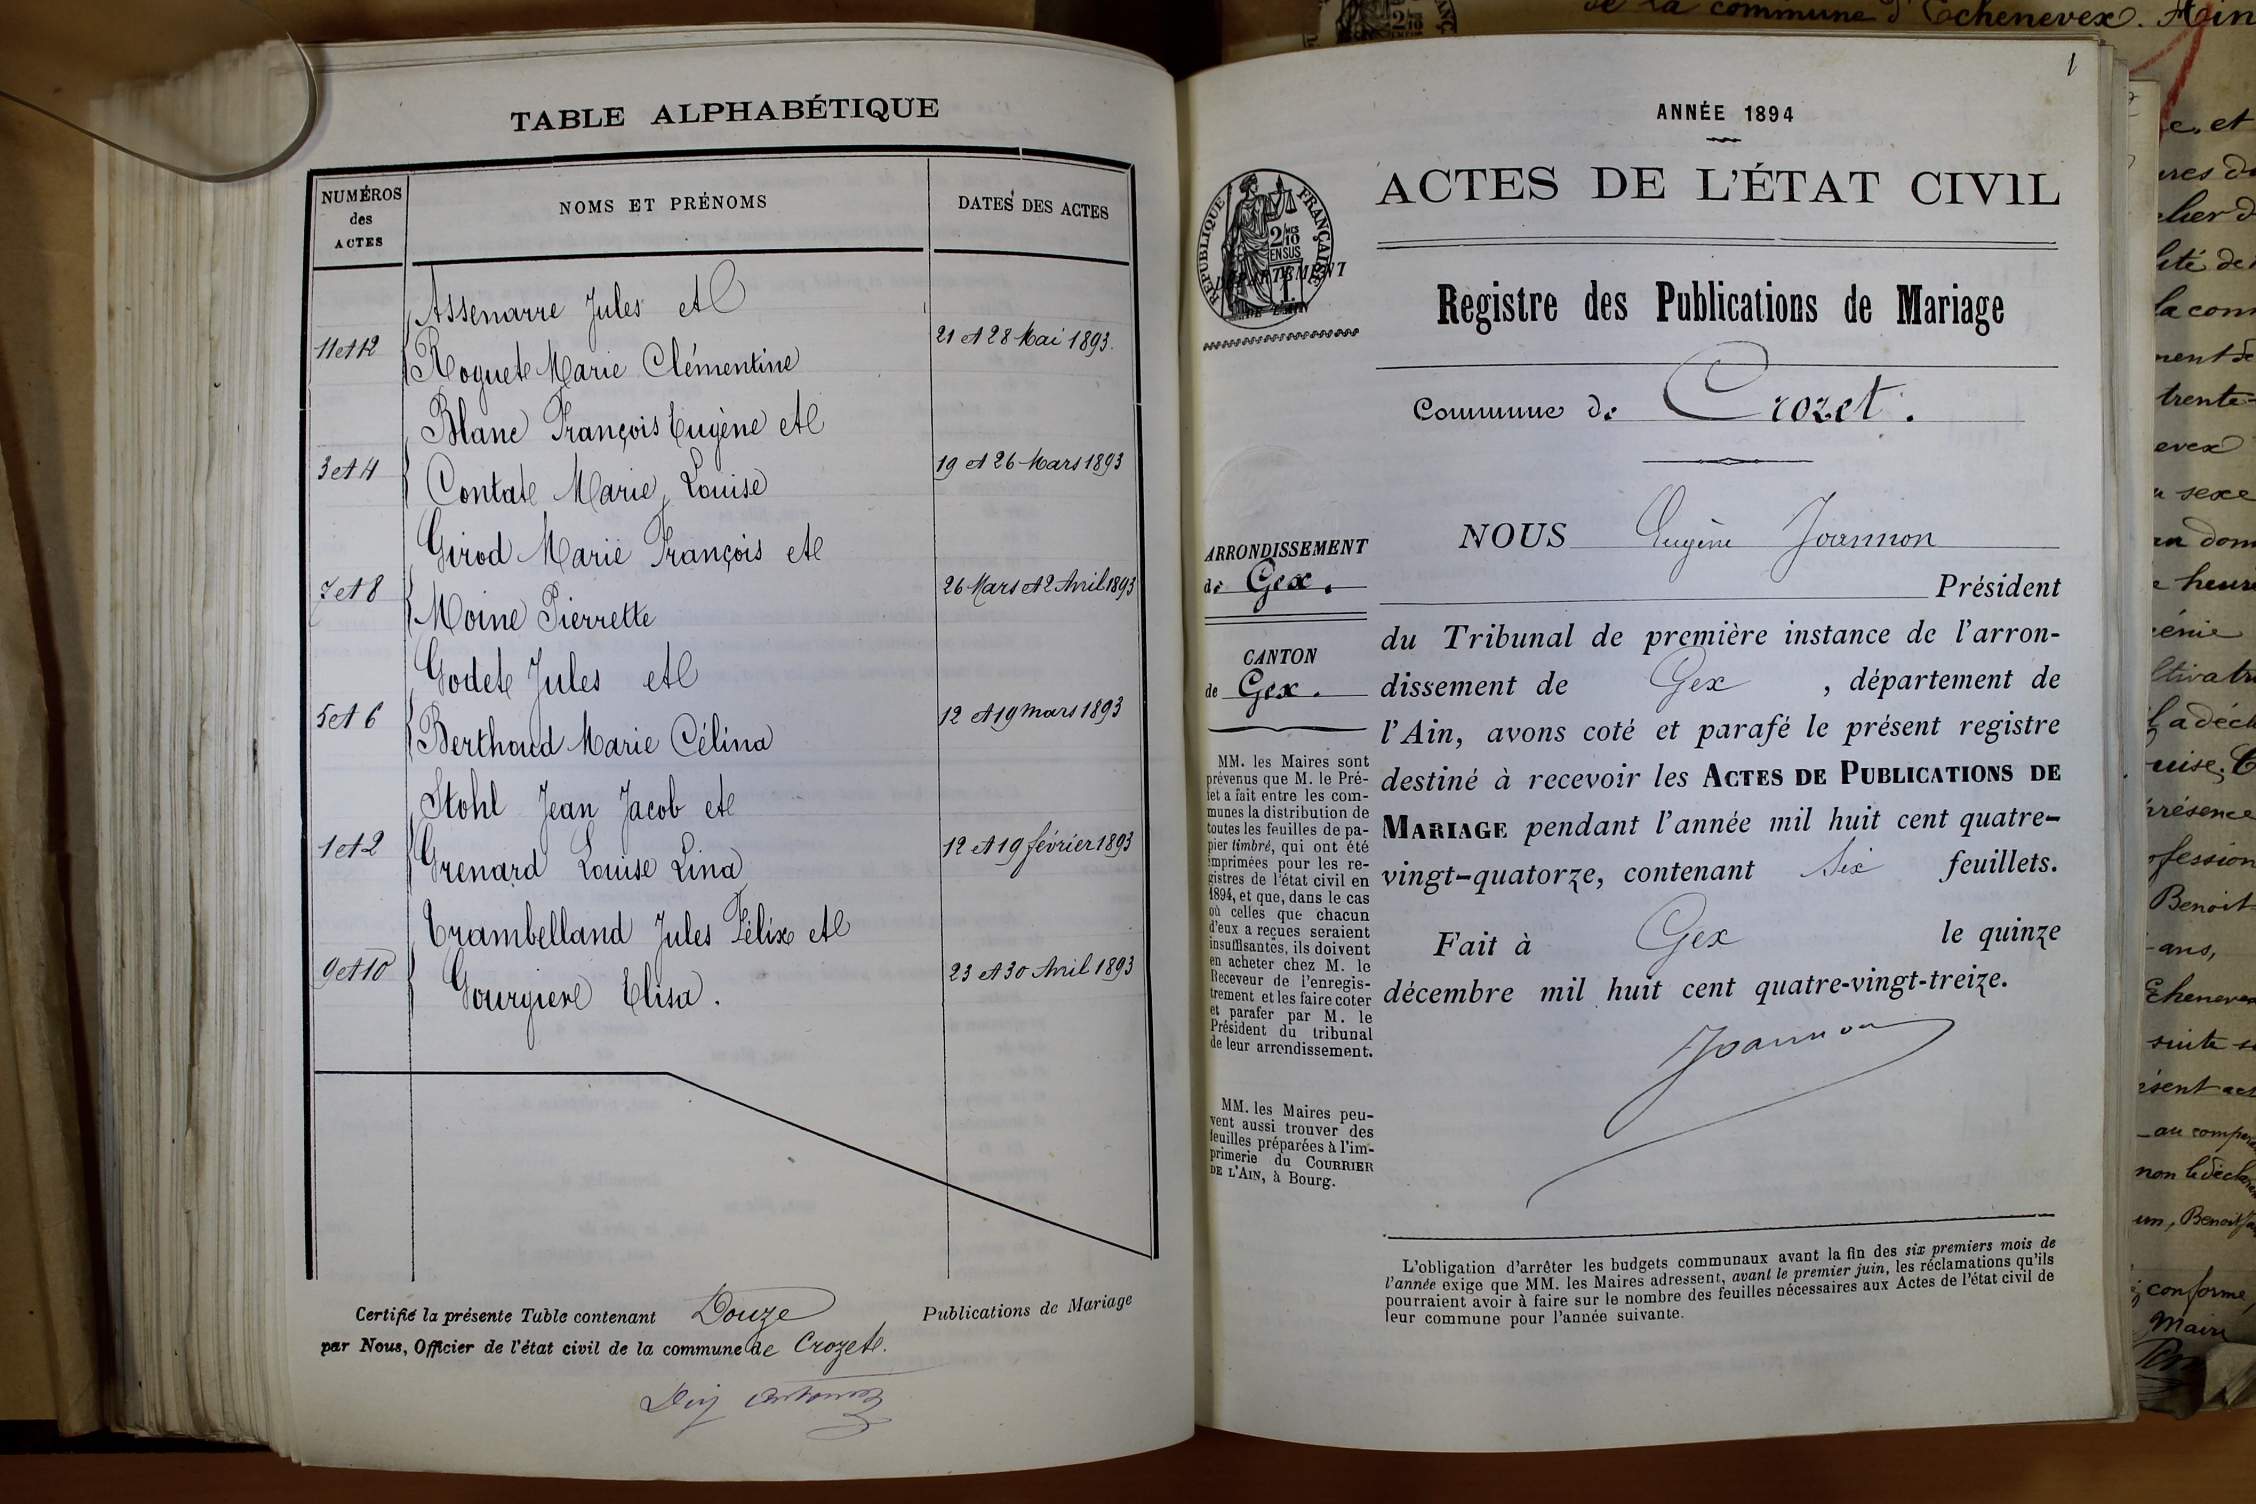 TABLE ALPHABÉTIQUE
NUMÉROS des ACTES
NOMS ET PRÉNOMS
DATES DES ACTES
Assenarre Jules et
11 et 12
21 et 28 Mai 1893.
Roguet Marie Clémentine
Blanc François Eugène et
3 et 4
19 et 26 Mars 1893
Contat Marie Louise
Girod Marie François et
7 et 8
26 Mars et 2 Avril 1893
Moine Pierrette
Godet Jules et
5 et 6
12 et 19 mars 1893
Berthoud Marie Célina
Stohl Jean Jacob et
1 et 2
12 et 19 février 1893
Grenard Louise Lina
Trambelland Jules Félix et
9 et 10
23 et 30 Avril 1893
Elisa.
Certifié la présente Table contenant Douze Publications de Mariage
par Nous, Officier de l'état civil de la commune de Crozet.
1
ANNÉE 1894
ACTES DE L'ÉTAT CIVIL
RÉPUBLIQUE FRANÇAISE
2/10 EN SUS
DÉPARTEMENT
DE L'AIN
Registre des Publications de Mariage
Commune de Crozet.
ARRONDISSEMENT
de Gex.
CANTON
de Gex.
MM. les Maires sont
prévenus que M. le Pré-
fet a fait entre les com-
munes la distribution de
toutes les feuilles de pa-
pier timbré, qui ont été
imprimées pour les re-
gistres de l'état civil en
1894, et que, dans le cas
où celles que chacun
d'eux a reçues seraient
insuffisantes, ils doivent
en acheter chez M. le
Receveur de l'enregis-
trement et les faire coter
et parafer par M. le
Président du tribunal
de leur arrondissement.
MM. les Maires peu-
vent aussi trouver des
feuilles préparées à l'im-
primerie du COURRIER
DE L'AIN, à Bourg.
NOUS Eugène Joannon
Président
du Tribunal de première instance de l'arron-
dissement de Gex, département de
l'Ain, avons coté et parafé le présent registre
destiné à recevoir les ACTES DE PUBLICATIONS DE
MARIAGE pendant l'année mil huit cent quatre-
vingt-quatorze, contenant six feuillets.
Fait à Gex le quinze
décembre mil huit cent quatre-vingt-treize.
Joannon
L'obligation d'arrêter les budgets communaux avant la fin des six premiers mois de
l'année exige que MM. les Maires adressent, avant le premier juin, les réclamations qu'ils
pourraient avoir à faire sur le nombre des feuilles nécessaires aux Actes de l'état civil de
leur commune pour l'année suivante.
de la commune d'Echenevex. Ain